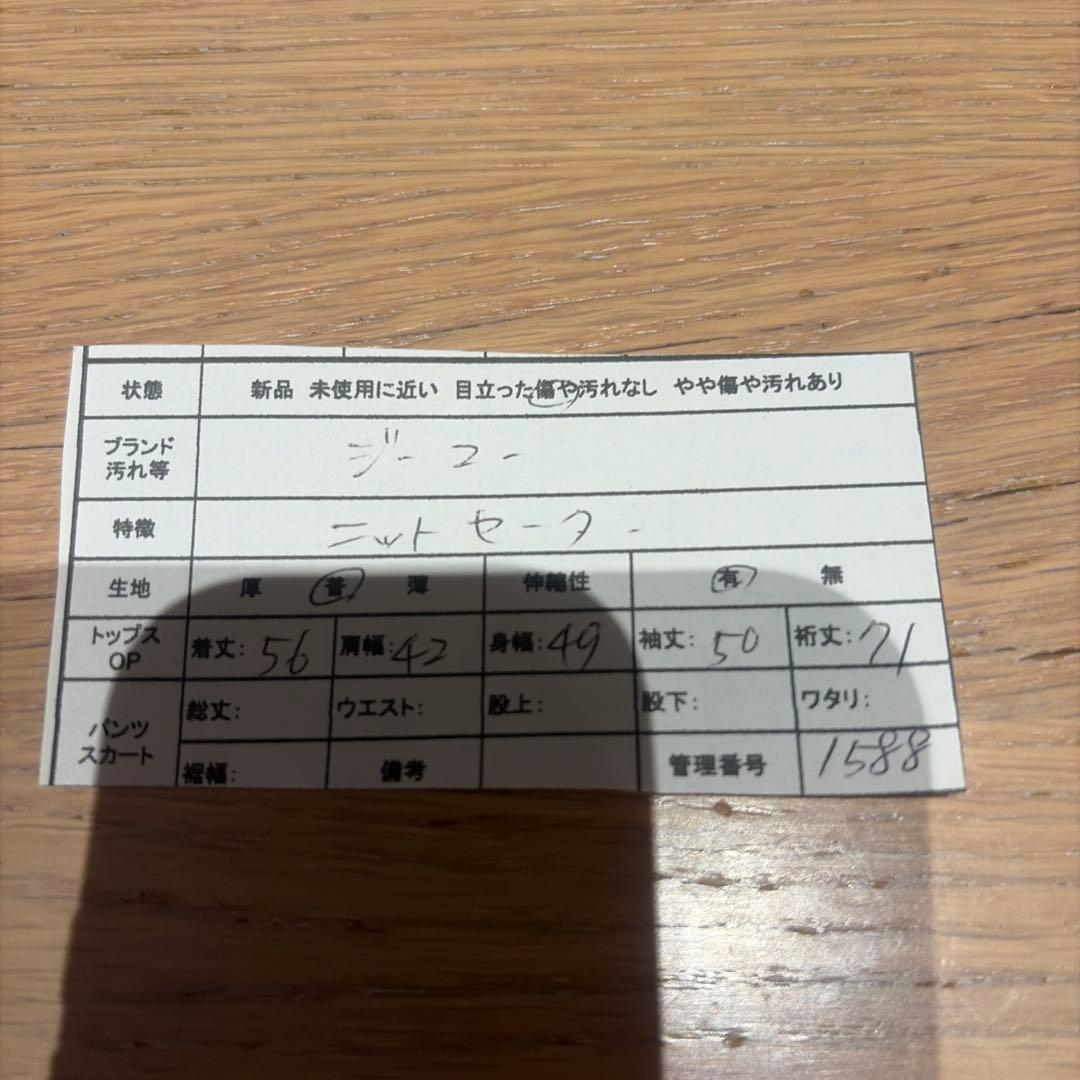 状態 新品 未使用に近い 目立った傷や汚れなし やや傷や汚れあり
ブランド
汚れ等
ジーユー
特徴 ニットセーター
生地 厚 普 薄 伸縮性 有 無
トップス
OP
着丈:56 肩幅:42 身幅:49 袖丈:50 裄丈:71
パンツ
スカート
総丈: ウエスト: 股上: 股下: ワタリ:
裾幅: 備考 管理番号 1588